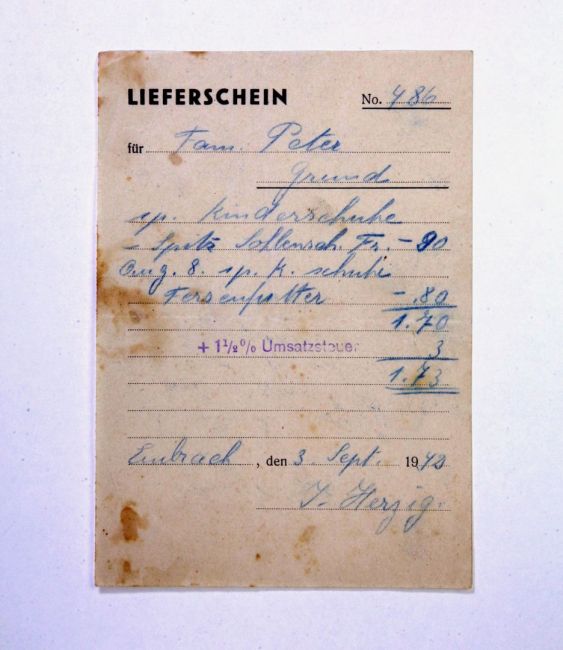 LIEFERSCHEIN No. 486
für Fam. Peter
Grund
sp. Kinderschuhe
- Spitz Sohlensch. Fr. - 90
Aug. 8. sp. K. schuhe
Fersenfutter -.80
1.70
+ 1½% Umsatzsteuer 3
1.73
Embrach, den 3. Sept. 1942
J. Herzig.